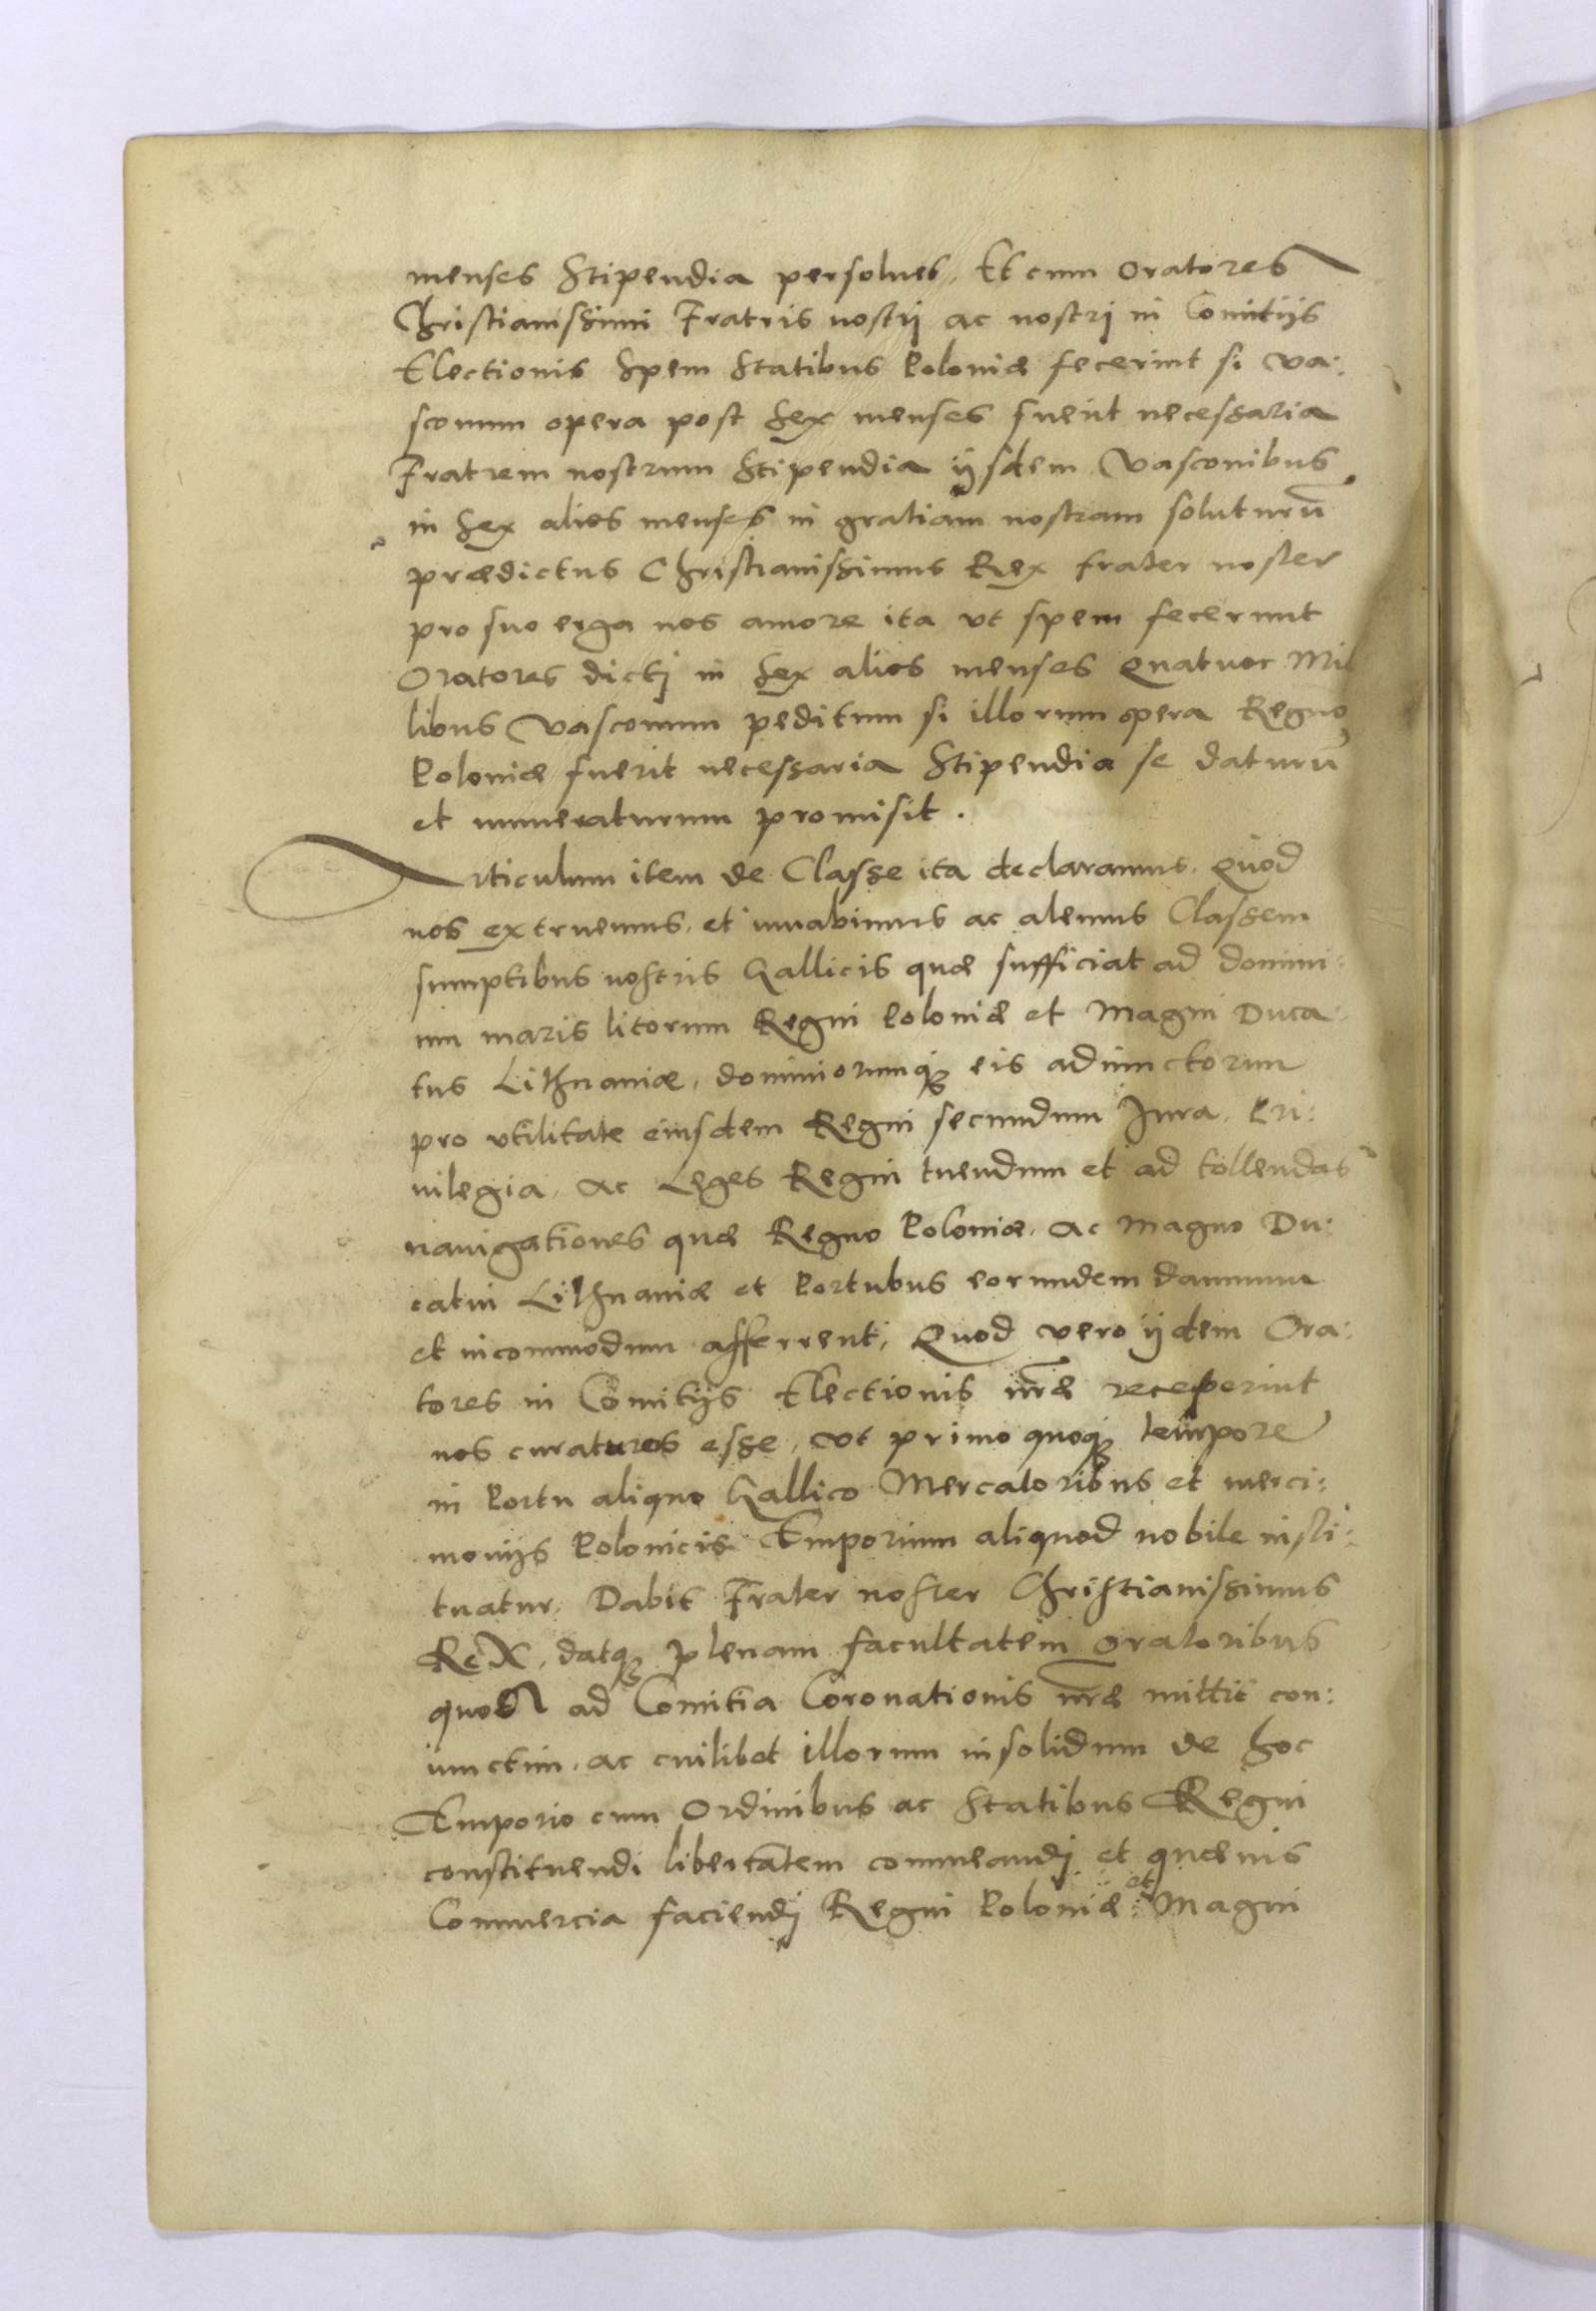 menses Stipendia persoluet, Et cum oratores
Christianissimi Fratris nostrj ac nostrj in Comitijs
Electionis Spem Statibus Poloniæ fecerint si Va:
sconum opera post Sex menses fuerit necessaria
Fratrem nostrum Stipendia ijsdem Vasconibus
in Sex alios menses in gratiam nostram soluturū
prædictus Christianissimus Rex frater noster
pro suo erga nos amore ita vt spem fecerunt
Oratores dictj in Sex alios menses quatuor Mil
libus Vasconum peditum si illorum opera Regno
Poloniæ fuerit necessaria Stipendia se daturū
et numeraturum promisit.
Articulum item de Classe ita declaramus. Quod
nos extruemus, et iuuabimus ac alemus Classem
sumptibus nostris Gallicis quæ sufficiat ad domini:
um maris litorum Regni Poloniæ et Magni Duca:
tus Lithuaniæ, dominiorumq; eis adiunctorum
pro vtilitate eiusdem Regni secundum Jura, Pri:
uilegia, ac Leges Regni tuendum et ad tollendas
nauigationes quæ Regno Poloniæ, ac Magno Du:
catui Lithuaniæ et Portubus eorundem damnum
et incommodum afferrent, Quod vero ijdem Ora:
tores in Comitijs Electionis nr̄æ receperint
nos curaturos esse, vt primo quoq; tempore
in Portu aliquo Gallico Mercatoribus et merci:
monijs Polonicis Emporium aliquod nobile insti:
tuatur, Dabit Frater noster Christianissimus
ReX, datq; plenam facultatem oratoribus
quos ad Comitia Coronationis nr̄æ mittit con:
iunctim, ac cuilibet illorum insolidum de hoc
Emporio cum Ordinibus ac Statibus Regni
constituendi libertatem commeandj et quæuis
Commercia faciendj Regni Poloniæ et Magni